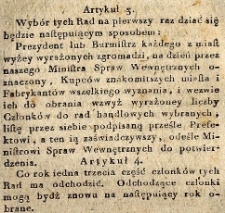 Artykuł 3.
Wybór tych Rad na pierwszy raz dziać się
będzie następującym sposobem:
Prezydent lub Burmistrz każdego z miast
wyżey wyrażonych zgromadzi, na dzień przez
naszego Ministra Spraw Wewnętrznych o-
znaczony, Kupców znakomitszych miasta i
Fabrykantów wszelkiego wyznania, i wezwie
ich do obrania wzwyż wyrażoney liczby
Członków do rad handlowych wybranych,
listę przez siebie podpisaną prześle Prefe-
ktowi, a ten ią zaświadczywszy, odeśle Mi-
nistrowi Spraw Wewnętrznych do potwier-
dzenia.
Artykuł 4.
Co rok iedna trzecia część członków tych
Rad ma odchodzić. Odchodzące członki
mogą bydź znowu na następujący rok o-
brane.